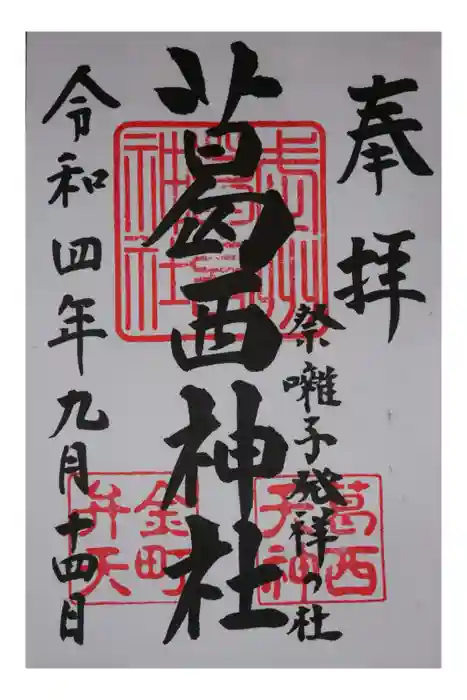 奉拝
祭囃子発祥の社
葛西神社
令和四年九月十四日
葛西
天神
金町
弁天